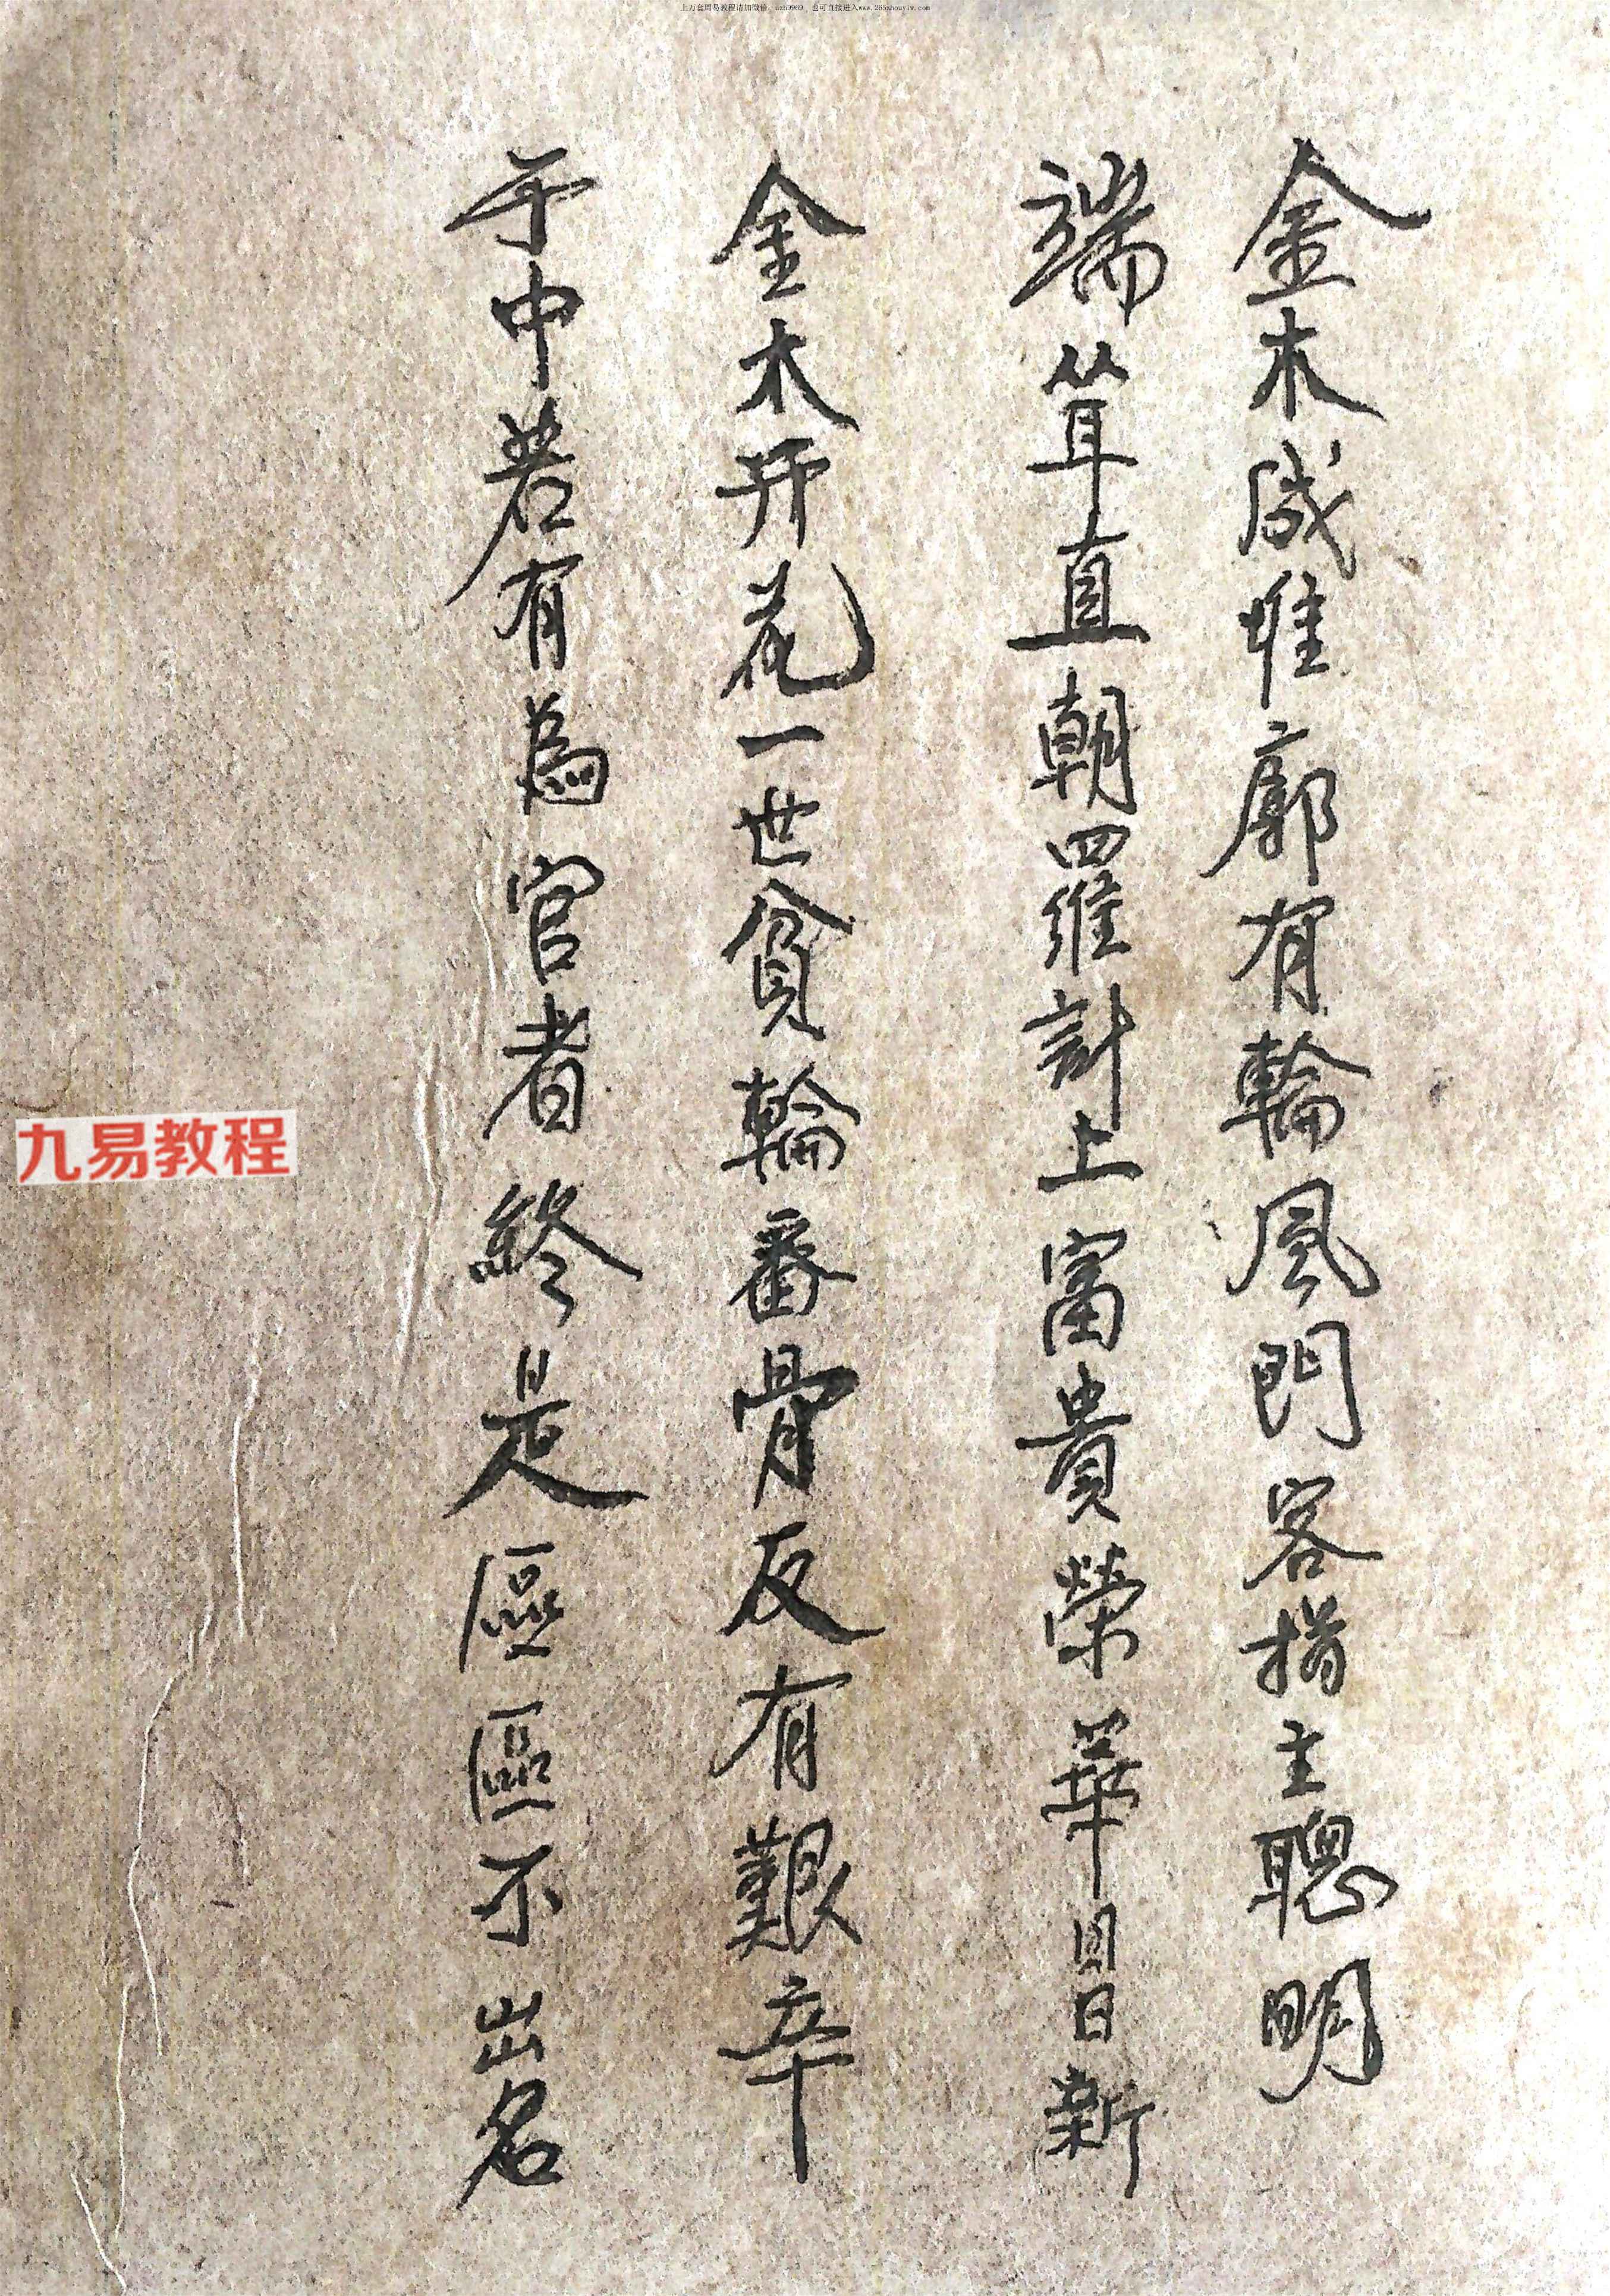 上万套周易教程请加微信：azh9969 ，也可直接进入www.265zhouyiw.com
金木成堆廓有輪風門客指主聰明
端耸直朝羅計上富貴榮華日日新
金木开花一世貧輪番骨反有艱辛
于中若有為官者終是區區不出名
九易教程